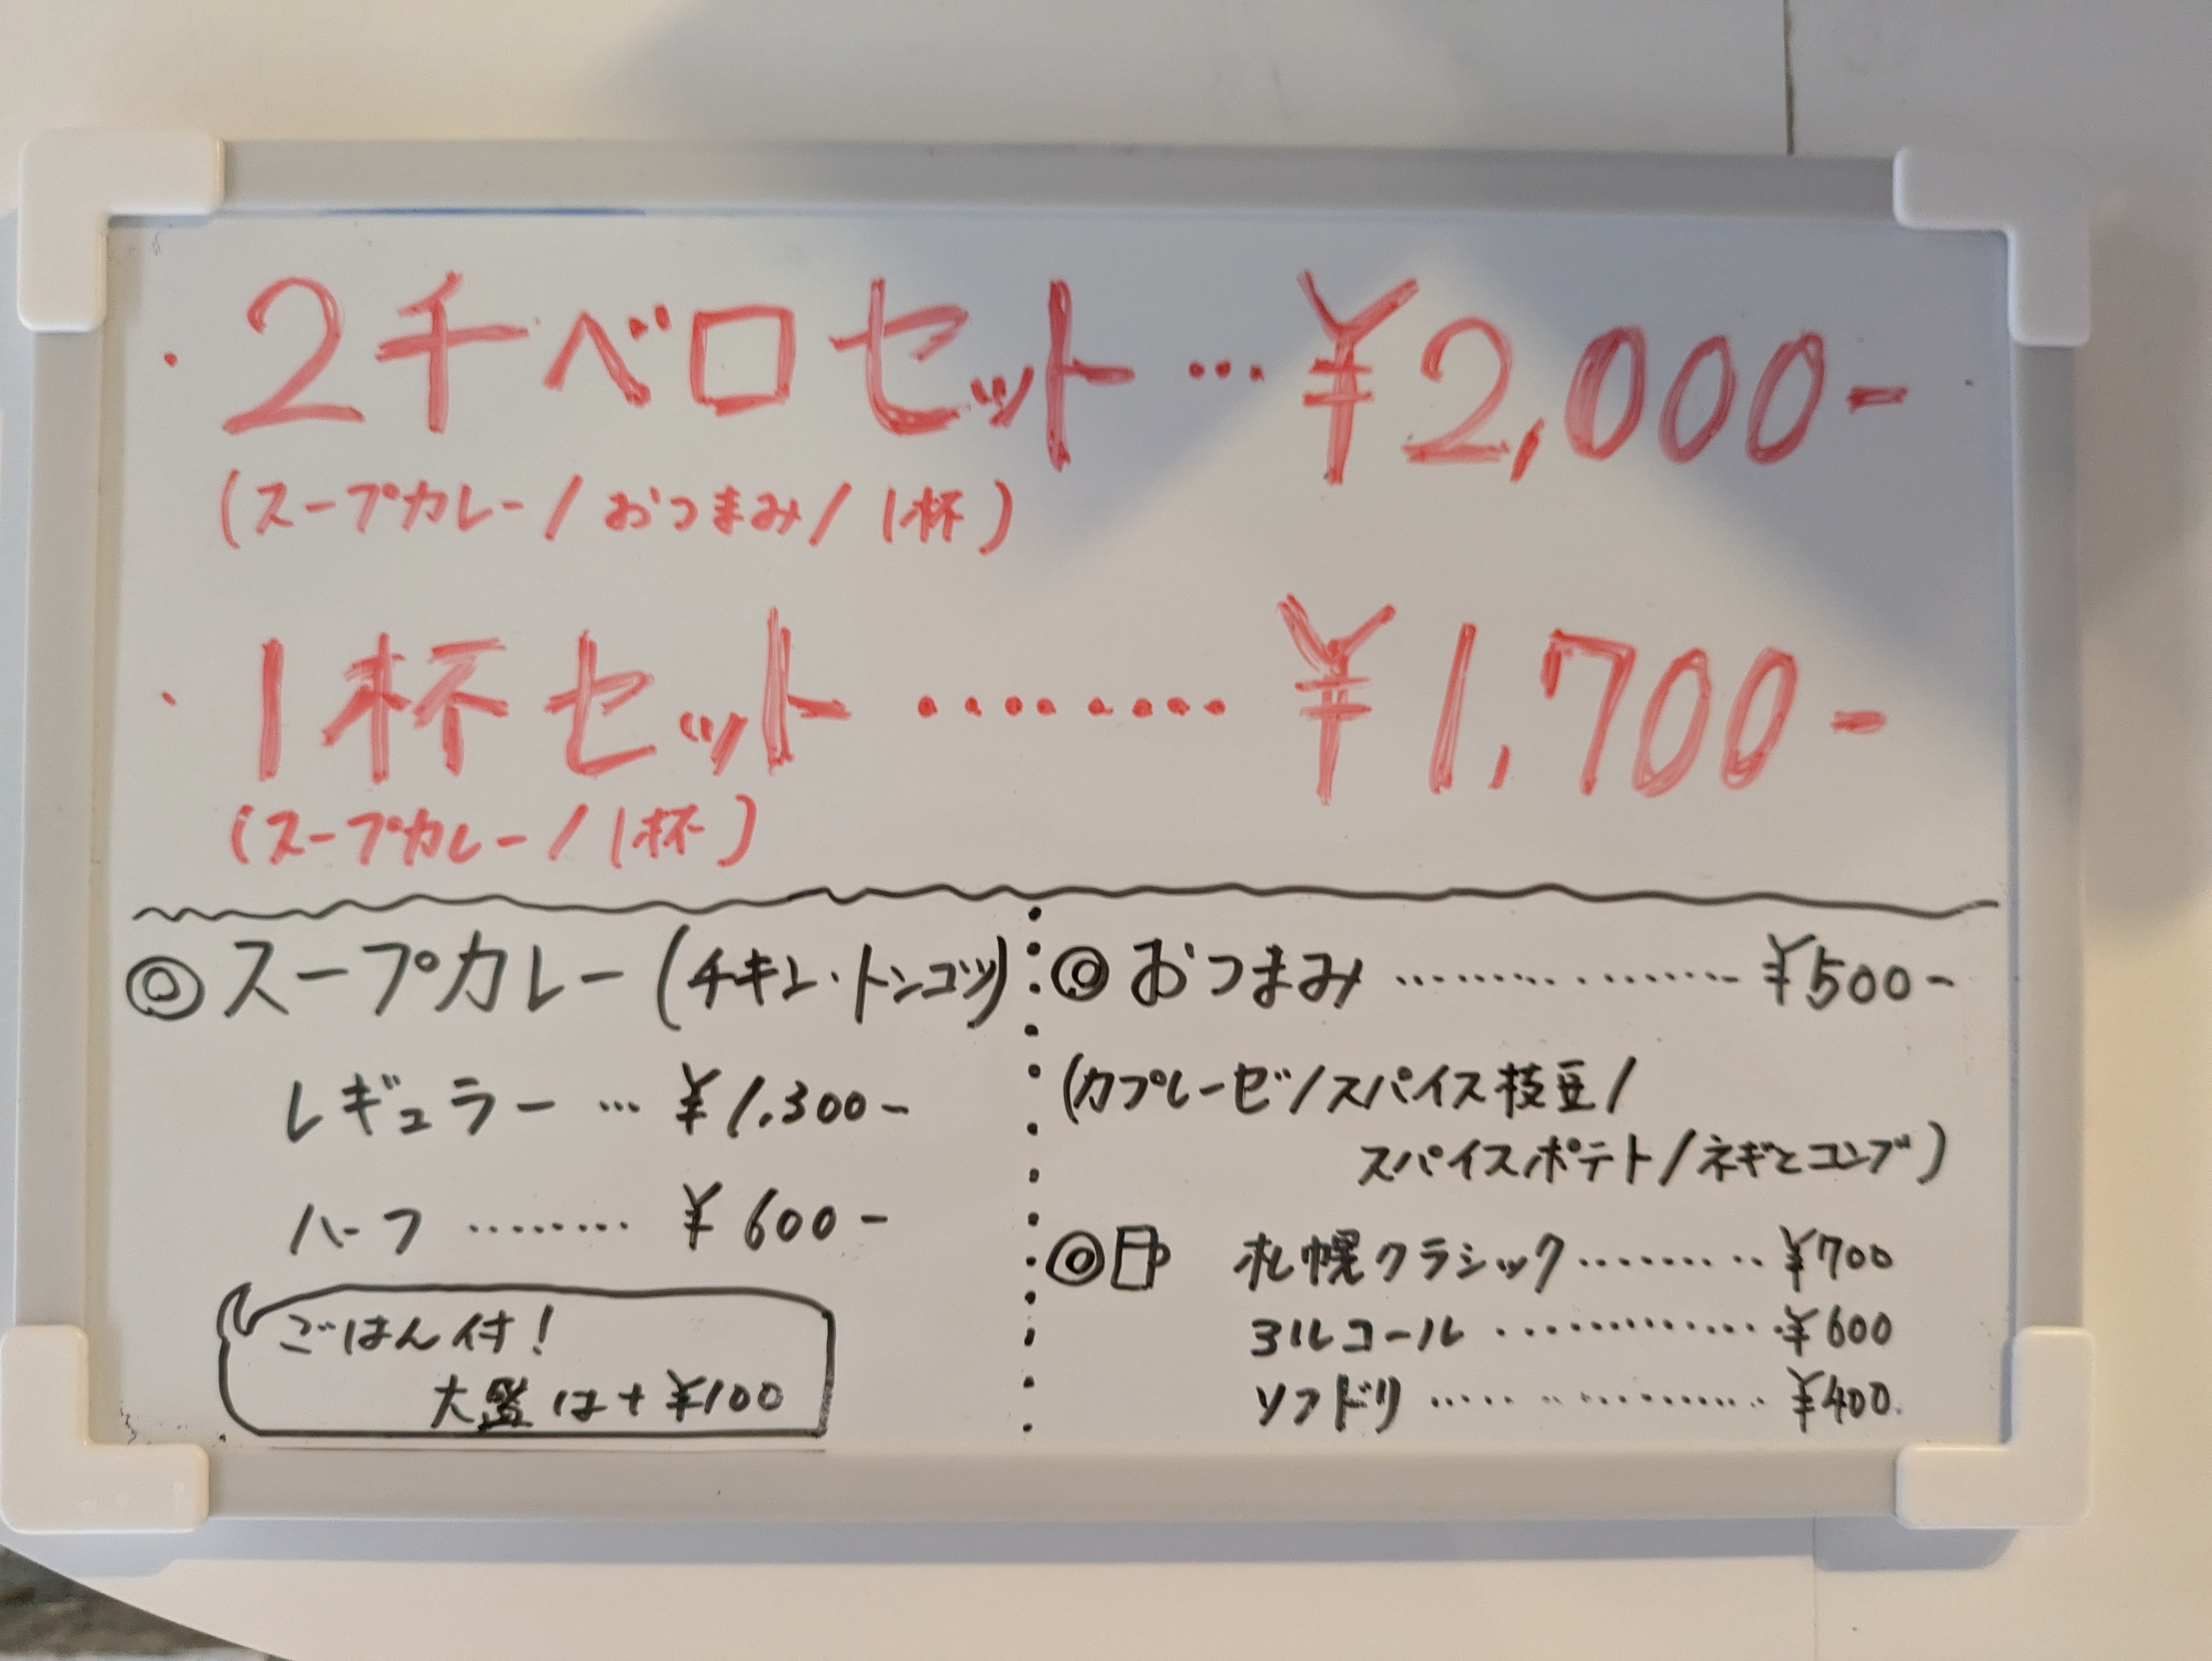 ・2千ベロセット…¥2,000-
(スープカレー/おつまみ/1杯)
・1杯セット………¥1,700-
(スープカレー/1杯)
◎スープカレー(チキン・トンコツ)
レギュラー…¥1,300-
ハーフ………¥600-
ごはん付!
大盛は+¥100
◎おつまみ………………¥500-
(カプレーゼ/スパイス枝豆/
スパイスポテト/ネギとコンブ)
◎ 札幌クラシック………¥700
ヨルコール……………¥600
ソフドリ………………¥400